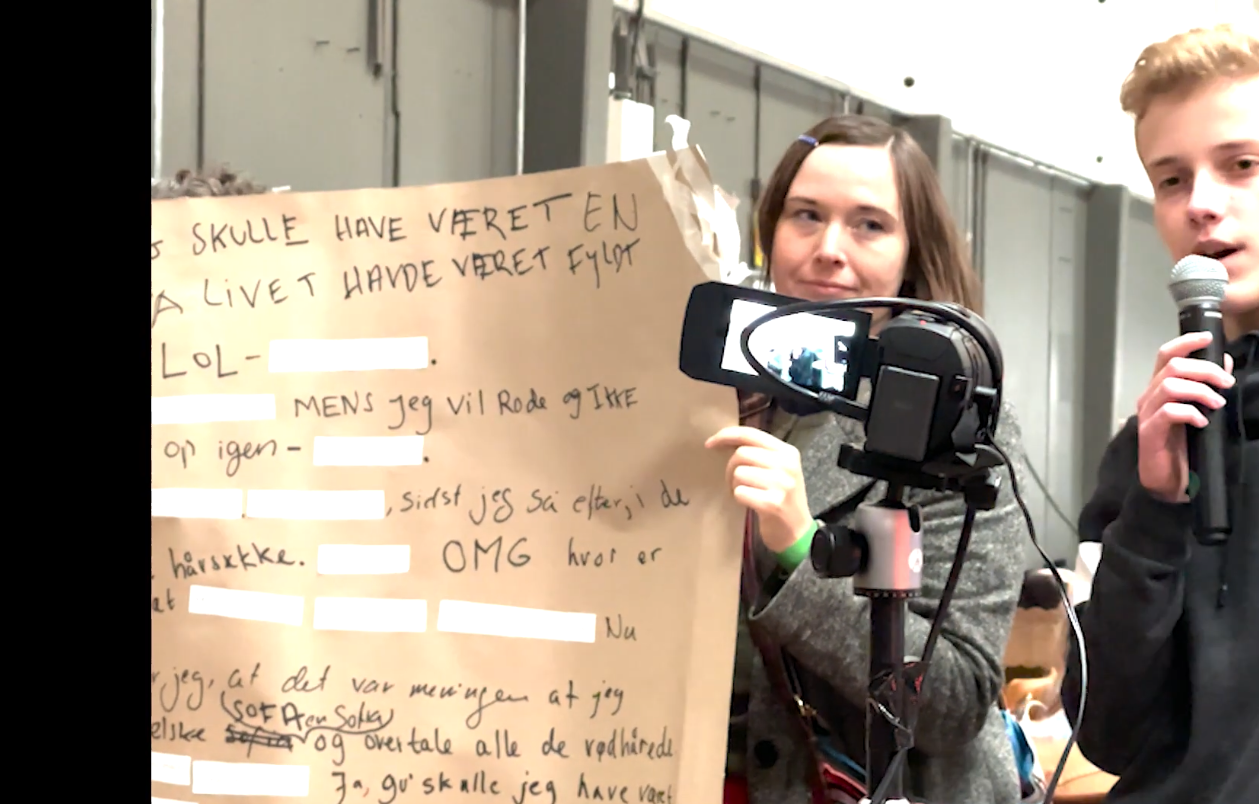 SKULLE HAVE VÆRET EN
A LIVET HAVDE VÆRET FYLDT
LOL- .
MENS jeg vil Rode og IKKE
op igen - .
, sidst jeg så efter, i de
hårsække. OMG hvor er
at Nu
jeg, at det var meningen at jeg
(SOFA en Sofia)
elske og overtale alle de rødhårede
Ja, gu' skulle jeg have været